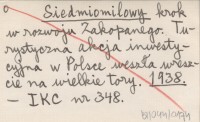 Siedmiomilowy krok
w rozwoju Zakopanego. Tu-
rystyczna akcja inwesty-
cyjna w Polsce weszła wresz-
cie na wielkie tory. 1938.
– IKC nr 348.